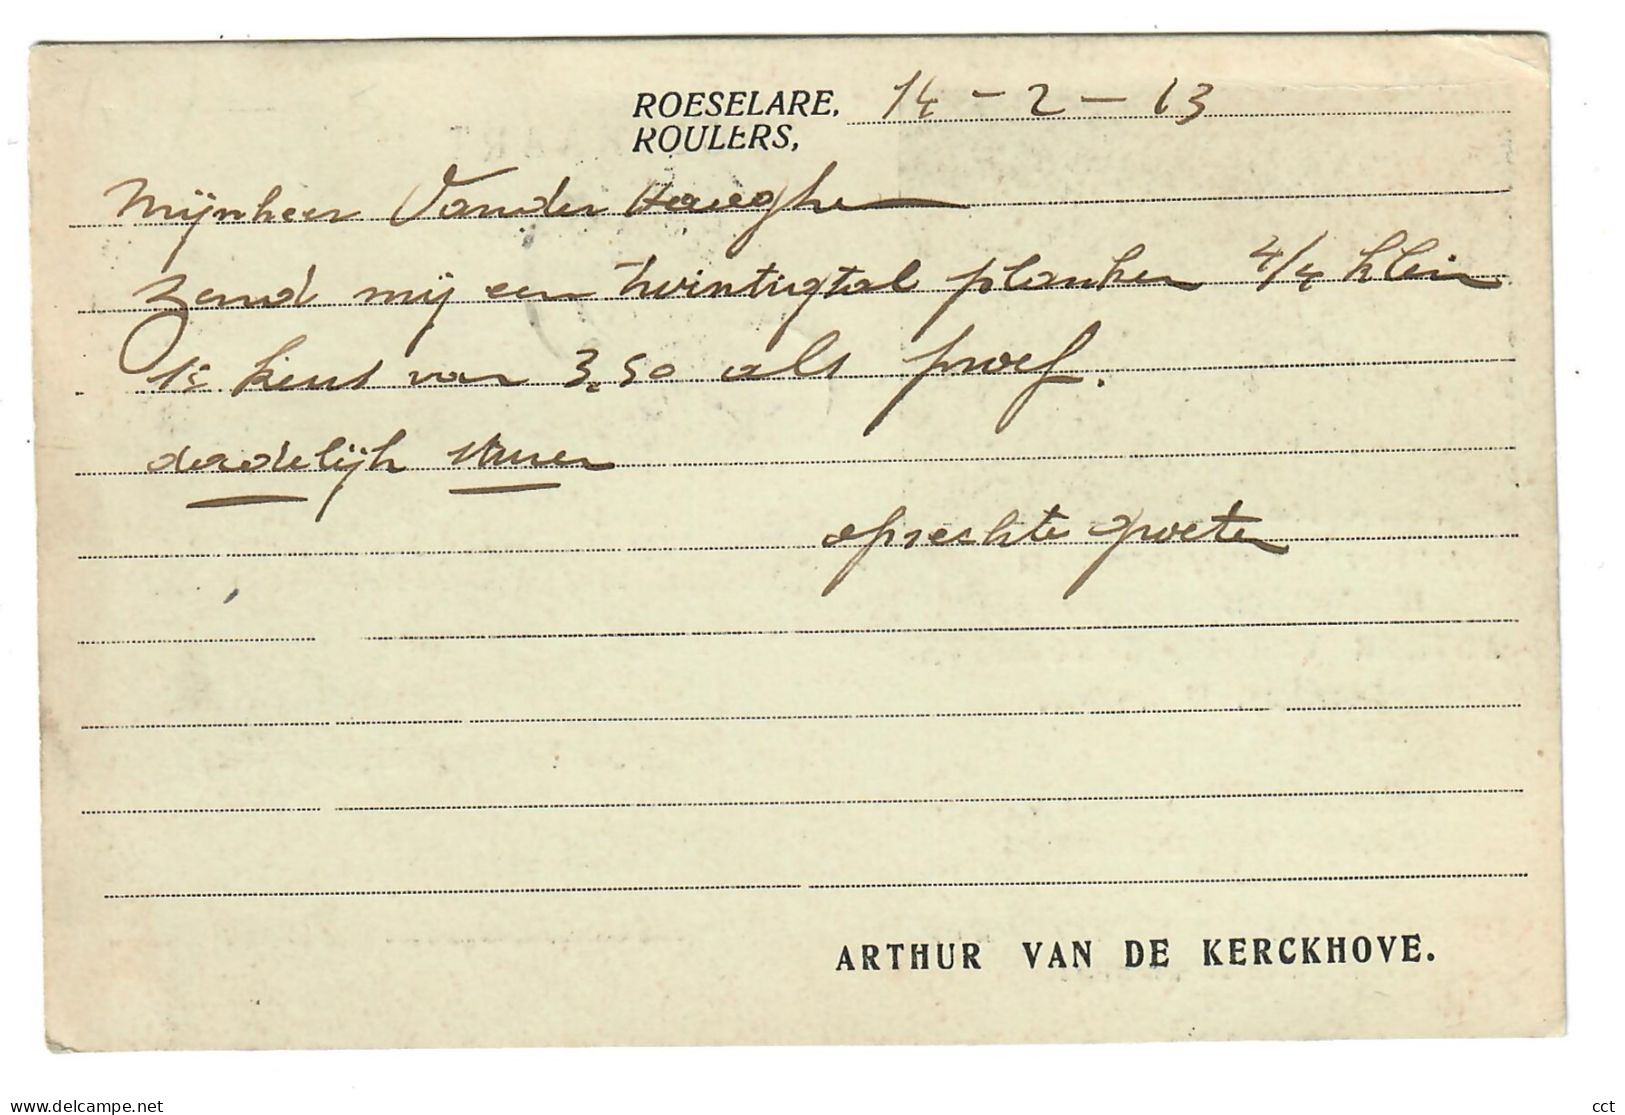 ROESELARE, 14 - 2 - 13
ROULERS,
Mijnheer Vander Haeeghe
Zend mij een twintigtal planken 4/4 klein
1e keus van 3,50 als proef.
dadelijk sturen
oprechte groeten
ARTHUR VAN DE KERCKHOVE.
delcampe.net
cct